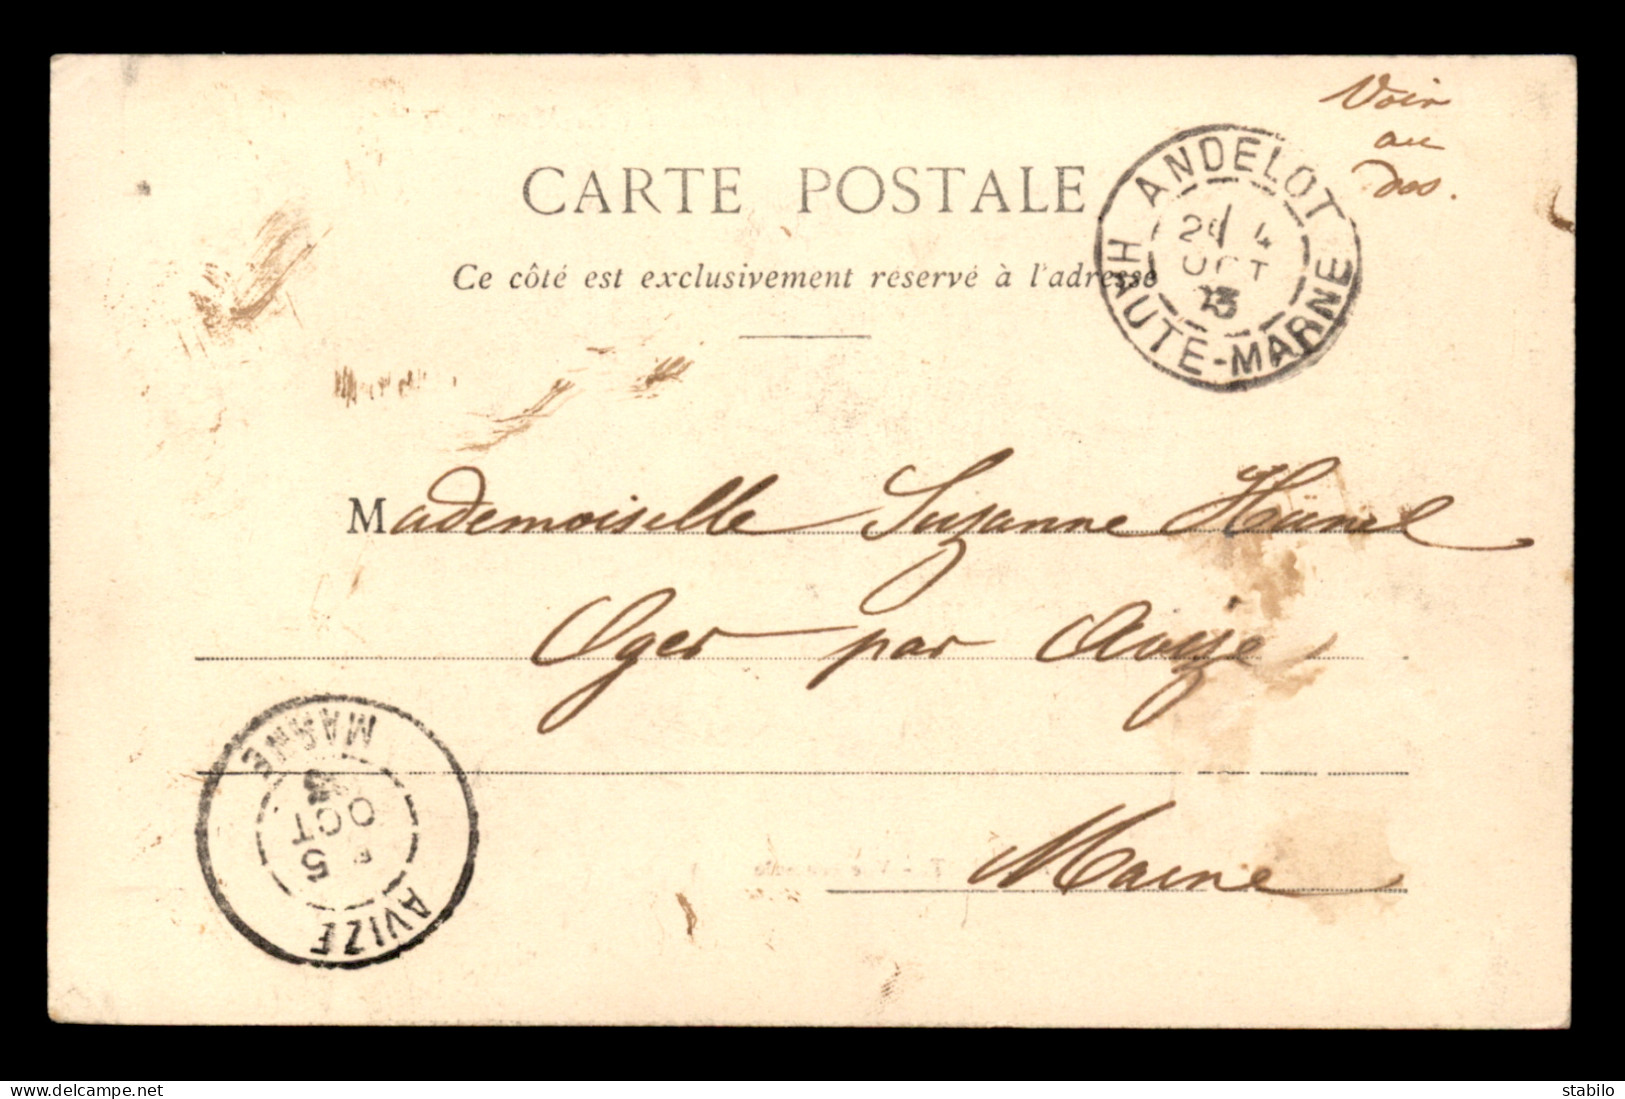 Voir
au
dos.
CARTE POSTALE
Ce côté est exclusivement réservé à l'adresse
ANDELOT
4
OCT
HAUTE-MARNE
Mademoiselle Suzanne
Oger par Avize
Marne
MARNE
OCT
5
AVIZE
delcampe.net
stabilo